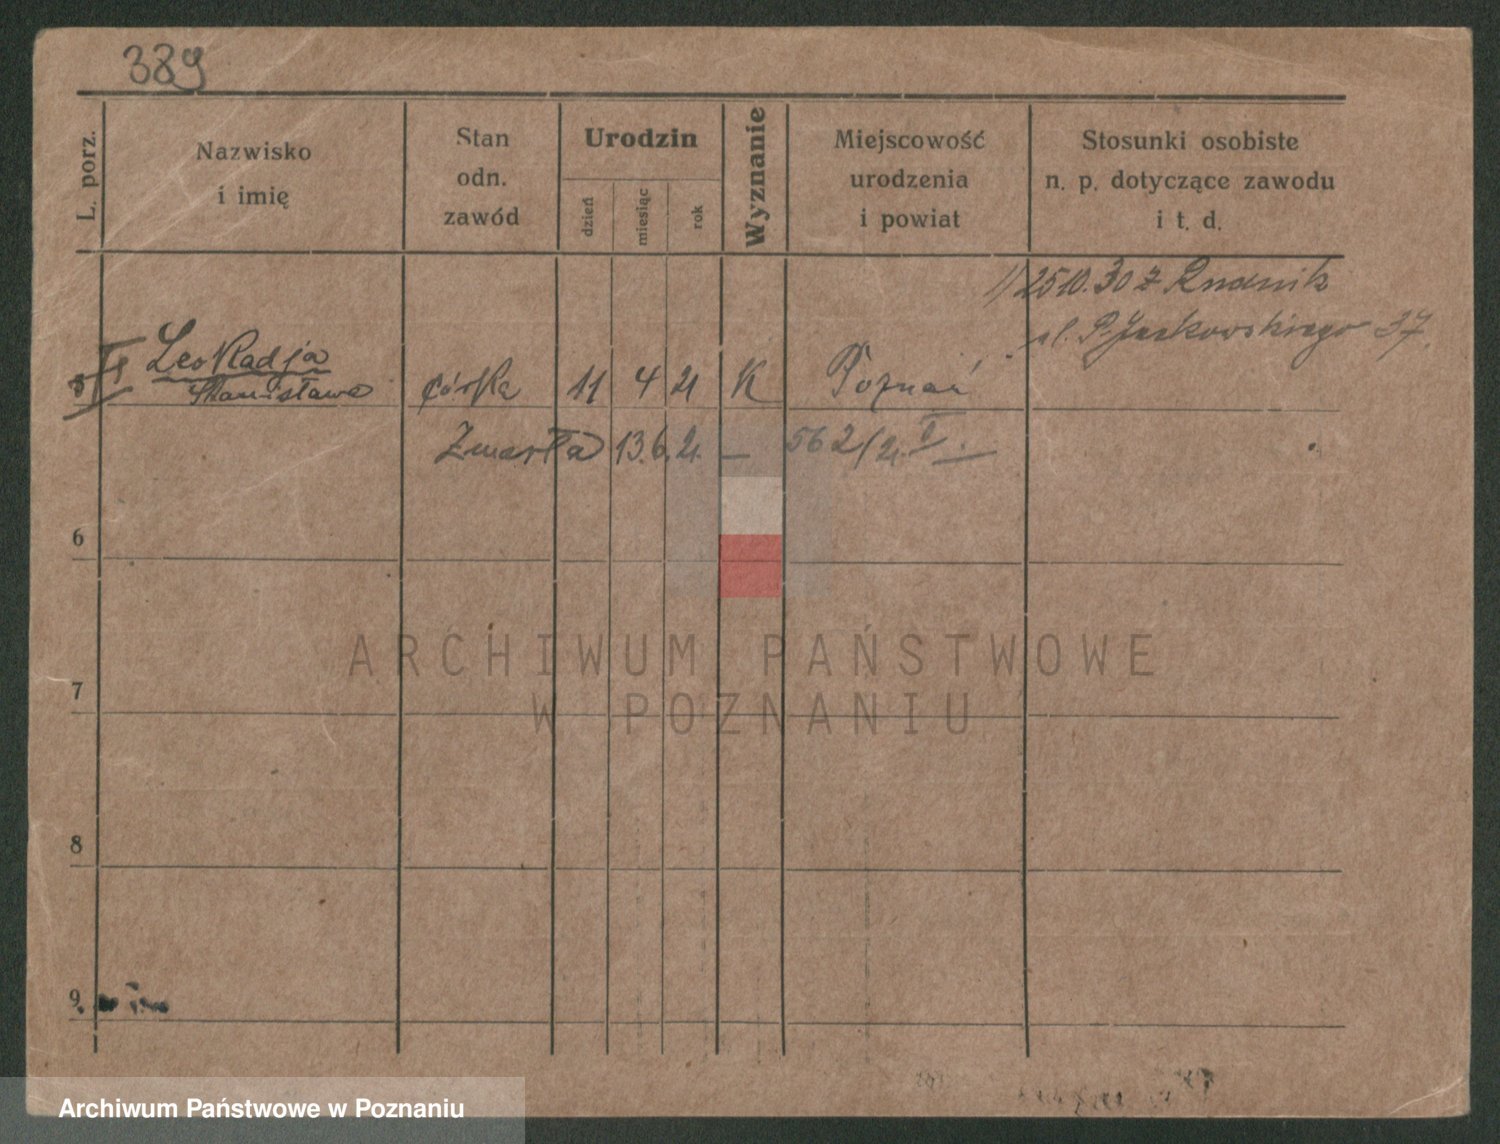 389
L. porz.
Nazwisko
i imię
Stan
odn.
zawód
Urodzin
dzień
miesiąc
rok
Wyznanie
Miejscowość
urodzenia
i powiat
Stosunki osobiste
n. p. dotyczące zawodu
i t. d.
1) 25.10.30 z
ul. P. Jackowskiego 37.
5 Leokadja
Stanisława
córka 11 4 21 K Poznań
Zmarła 13.6.21. — 562/21.
6
7
8
9.
ARCHIWUM PAŃSTWOWE
W POZNANIU
Archiwum Państwowe w Poznaniu